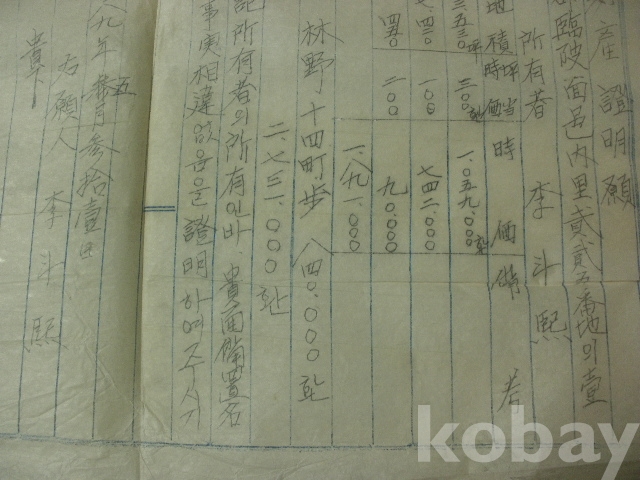 産 證明願
臨陂面邑內里貳貳五番地의壹
所有者 李斗熙
地積 坪当時価 時価 備考
三五三〇坪 三〇〇환 一.〇五九.〇〇〇환
七.四二〇 一〇〇 七四二.〇〇〇
四五〇 二〇〇 九〇.〇〇〇
一.八九一.〇〇〇
林野 十四町歩 八四〇.〇〇〇환
二.七三一.〇〇〇환
記所有者의所有인바 貴面備置名
事実相違없음을 證明하여주시기
八九年 五月 参拾壹日
右願人 李斗熙
貴下
kobay